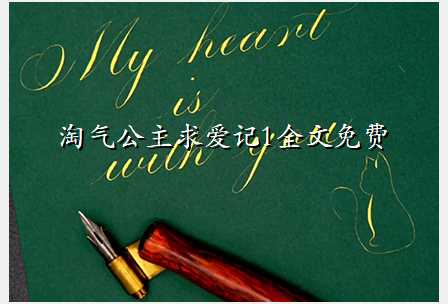 My heart
is
淘气公主求爱记1全文免费
with you